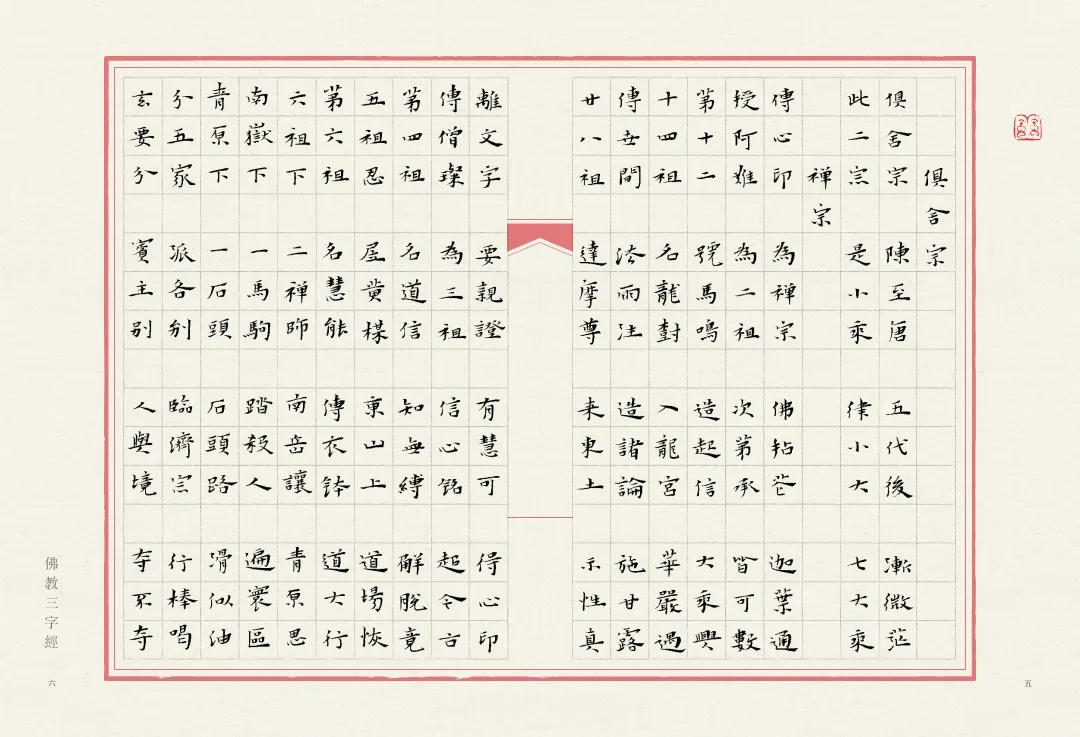 俱舍宗
俱舍宗 陳至唐 五代後 漸微茫
此二宗 是小乘 律小大 七大乘
禪宗
傳心印 為禪宗 佛拈花 迦葉通
授阿難 為二祖 次第承 皆可數
第十二 號馬鳴 造起信 大乘興
十四祖 名龍樹 入龍宮 華嚴遇
傳世間 法雨注 造諸論 施甘露
廿八祖 達摩尊 来東土 示性真
五
離文字 要親證 有慧可 得心印
傳僧璨 為三祖 信心銘 超今古
第四祖 名道信 知無縛 解脫竟
五祖忍 居黃楳 東山上 道場恢
第六祖 名慧能 傳衣鉢 道大行
六祖下 二禪師 南岳讓 青原思
南嶽下 一馬駒 踏殺人 遍寰區
青原下 一石頭 石頭路 滑似油
分五家 派各別 臨濟宗 行棒喝
玄要分 賓主別 人與境 夺不夺
佛教三字經
六